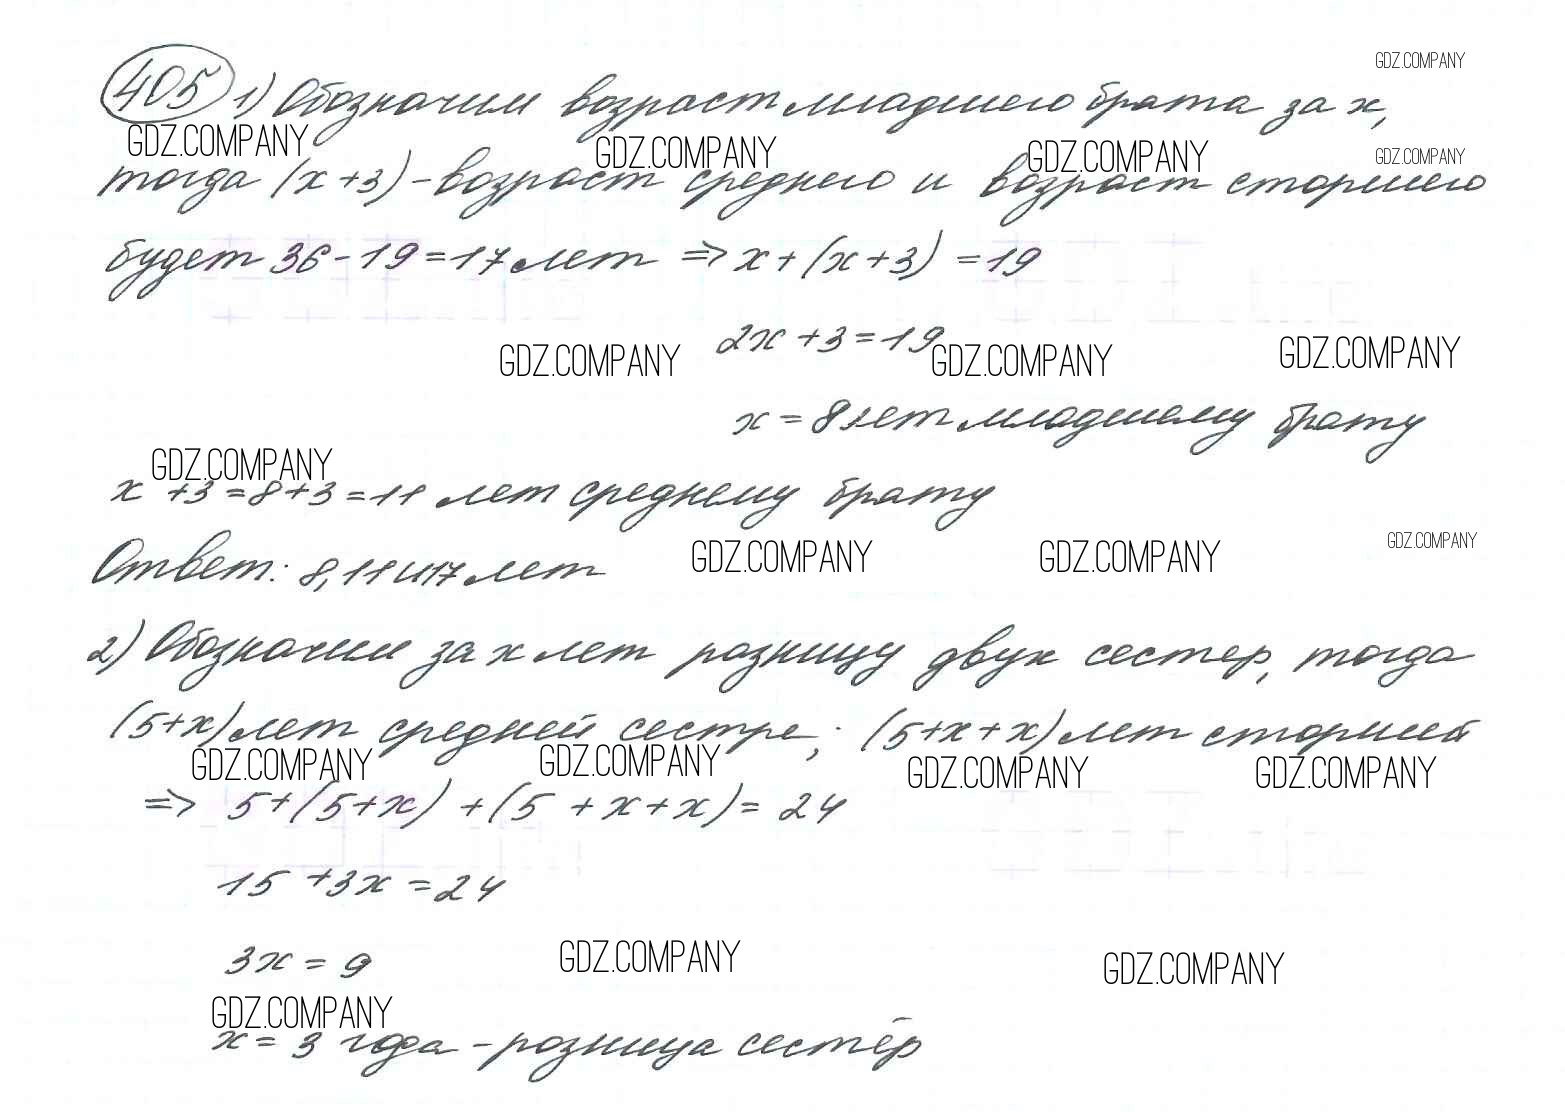 GDZ.COMPANY
405 1) Обозначим возраст младшего брата за х,
GDZ.COMPANY GDZ.COMPANY GDZ.COMPANY GDZ.COMPANY
тогда (х+3) - возраст среднего и возраст старшего
будет 36-19=17 лет => х+(х+3) =19
2х+3=19
GDZ.COMPANY GDZ.COMPANY GDZ.COMPANY
х=8 лет младшему брату
GDZ.COMPANY
х+3=8+3=11 лет среднему брату
GDZ.COMPANY GDZ.COMPANY GDZ.COMPANY
Ответ: 8, 11 и 17 лет
2) Обозначим за х лет разницу двух сестер, тогда
(5+х) лет средней сестре; (5+х+х) лет старшей
GDZ.COMPANY GDZ.COMPANY GDZ.COMPANY GDZ.COMPANY
=> 5+(5+х)+(5+х+х)=24
15+3х=24
3х=9
GDZ.COMPANY GDZ.COMPANY
GDZ.COMPANY
х=3 года - разница сестёр